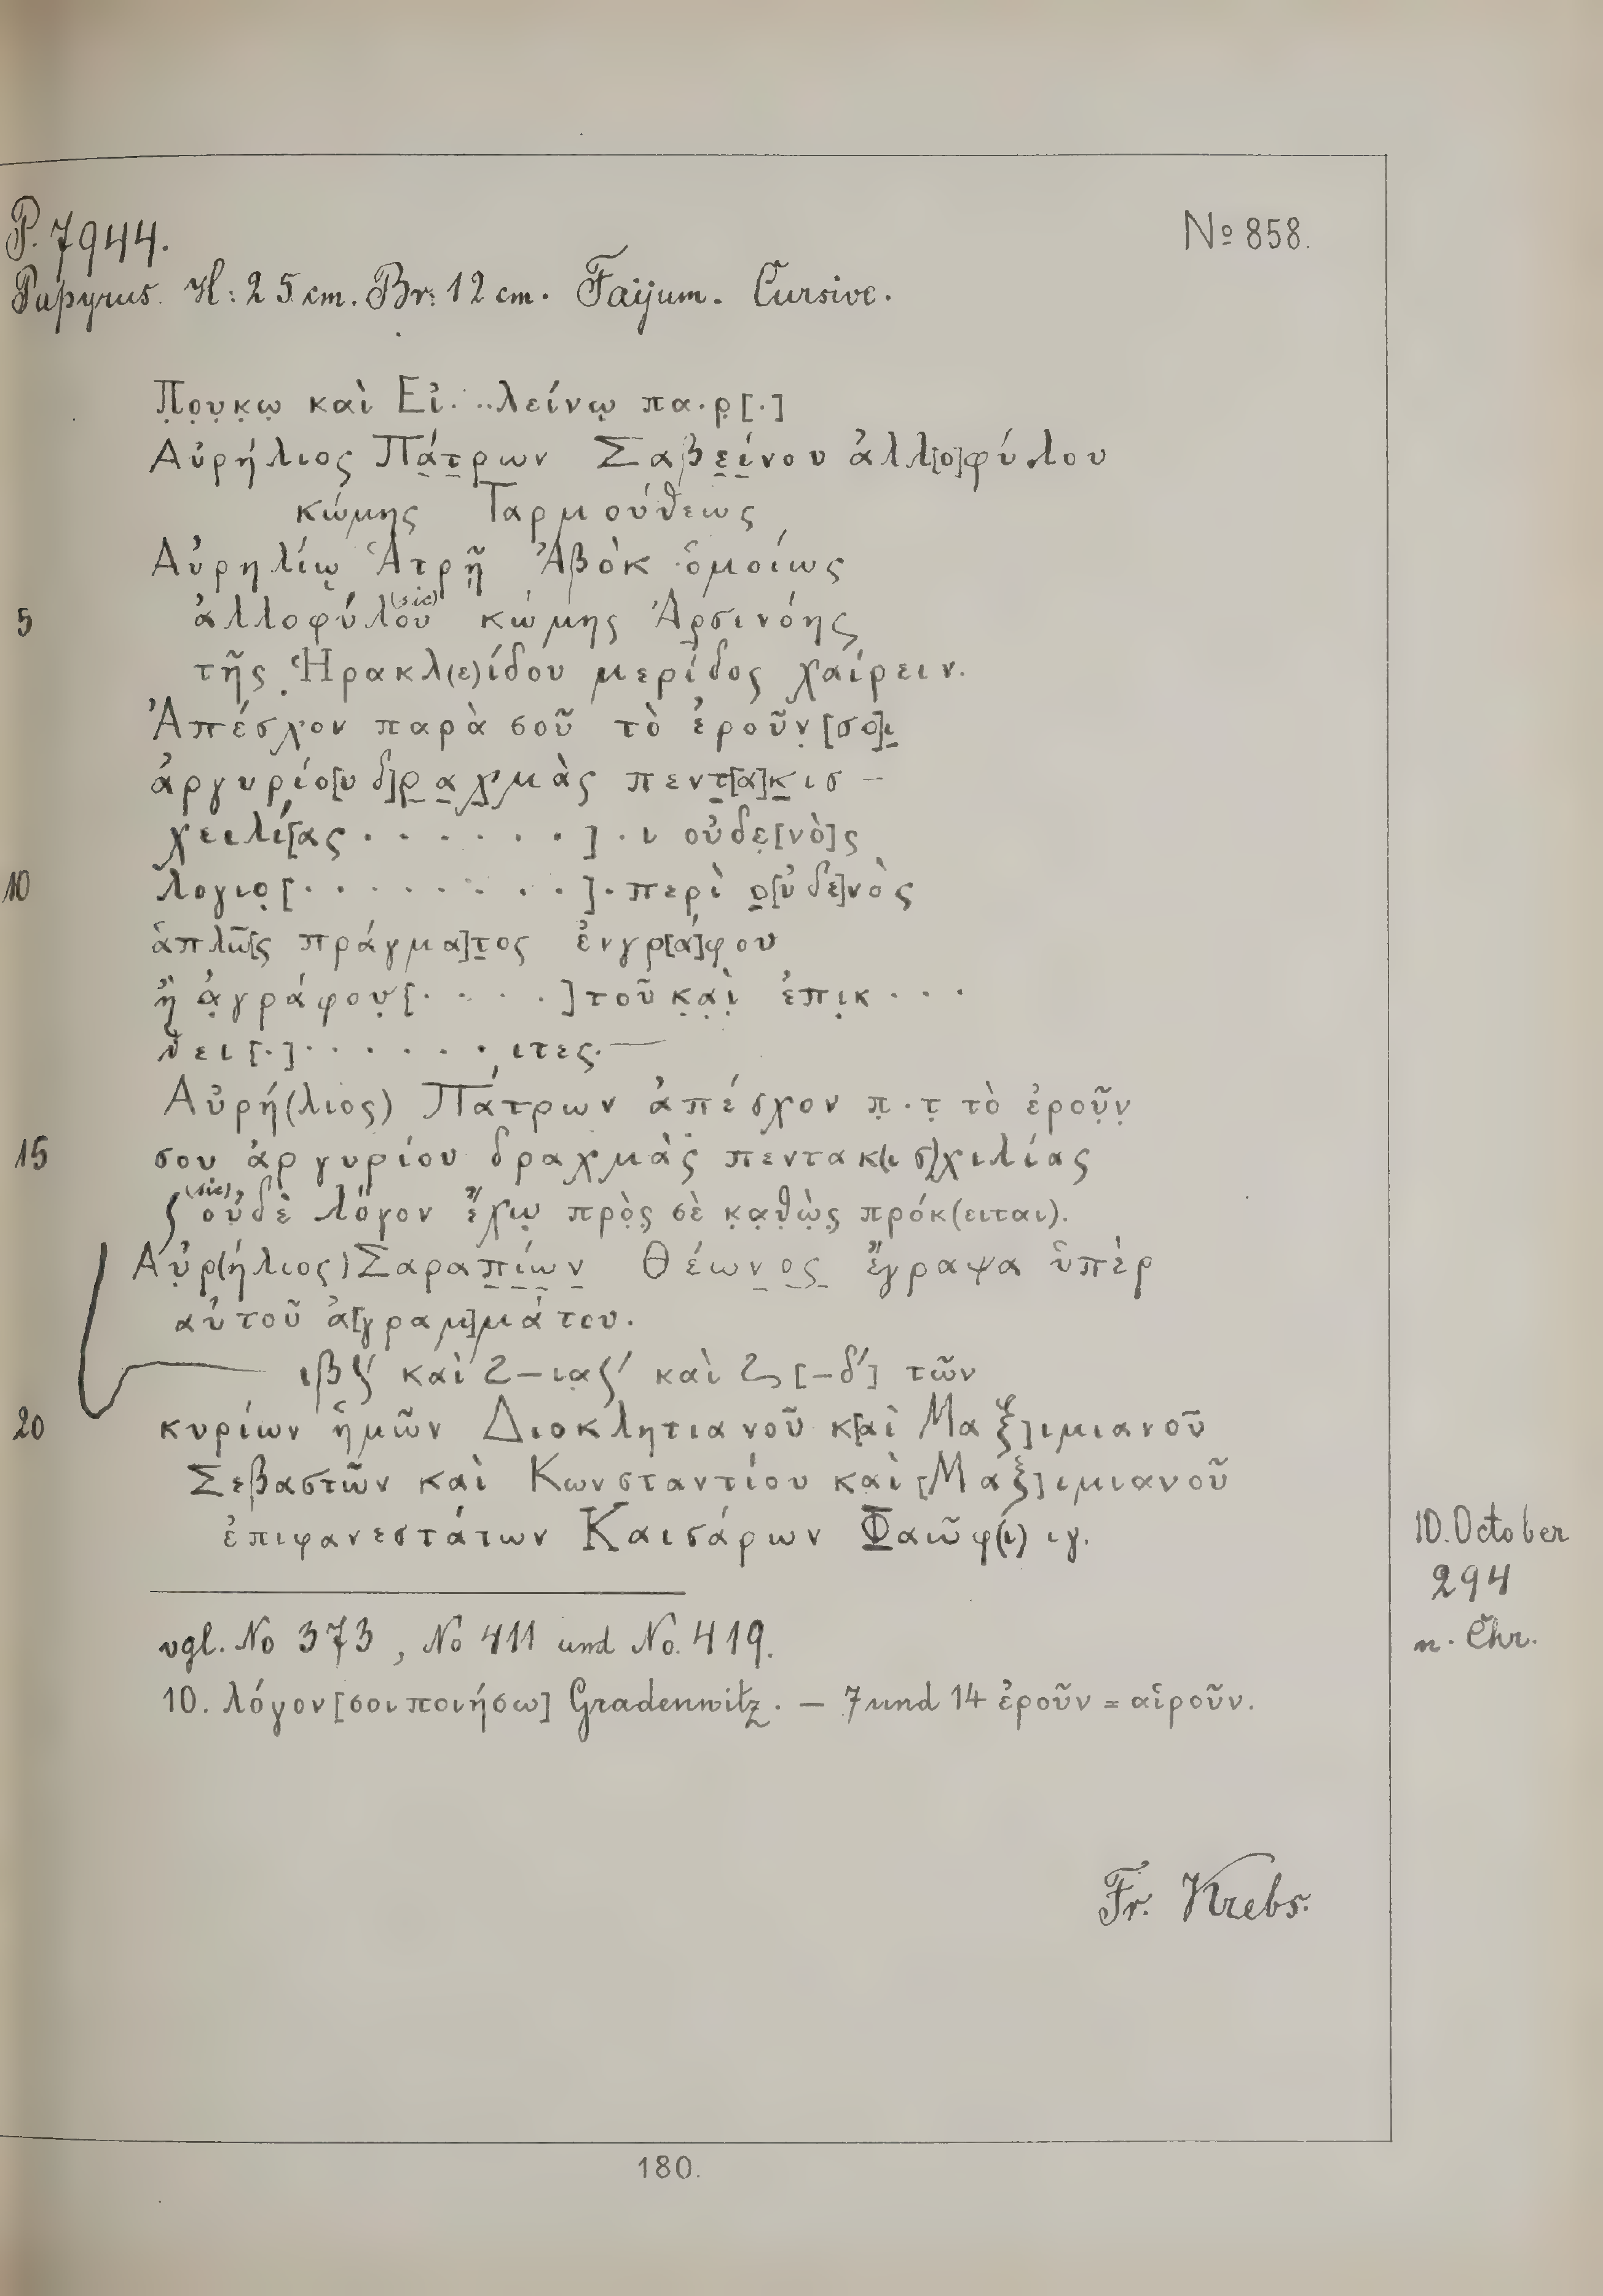 P. 7944.
No 858.
Papyrus. H: 25 cm. Br: 12 cm. Faijum. Cursive.
Π̣ο̣υ̣κ̣ῳ καὶ Εἰ...λείνῳ πα.ρ̣[.]
Αὐρήλιος Πά̣τ̣ρων Σαβε̣ί̣νου ἀλλ[ο]φύλου
κώμης Ταρμούθεως
Αὐρηλίῳ Ἁτρῇ Ἀβὸκ ὁμοίως
5 ἀλλοφύλου (sic) κώμης Ἀρ̣σινόης
τῆς Ἡρακλ(ε)ίδου μερίδος χαίρειν.
Ἀπέσχον παρὰ σοῦ τὸ ἐροῦν̣ [σο]ι̣
ἀργυρίο[υ δ]ρ̣α̣χ̣μὰς πεντ̣[α]κ̣ισ-
χειλί[ας . . . . . . .] . ι οὐδε̣[νὸ]ς
10 λογιο̣[. . . . . . . . .] . περὶ ο̣[ὐδε]νὸς
ἁπλῶ[ς πράγμα]τ̣ος ἐνγρ[ά]φου
ἢ ἀ̣γράφου̣ [. . . . .] τοῦ κ̣α̣ὶ̣ ἐπι̣κ . . .
θει[.] . . . . . . . ιτες.—
Αὐρή(λιος) Πάτρων ἀπέσχον π̣.τ̣ τὸ ἐροῦ̣ν̣
15 σου ἀργυρίου δραχμὰς πεντακ(ισ)χιλίας
(sic) οὐδὲ λόγον ἔχω̣ πρὸ̣ς σὲ κ̣α̣θ̣ὼ̣ς̣ πρόκ(ειται).
Αὐ̣ρ(ήλιος) Σαραπ̣ί̣ω̣ν̣ Θέων̣ο̣ς̣ ἔγραψα ὑπὲρ
αὐτοῦ ἀ[γραμ]μάτου.
ιβϛ′ καὶ 2–ια̣ϛ′ καὶ ϛ [–δ′] τῶν
20 κυρίων ἡμῶν Διοκλητιανοῦ κ[αὶ Μαξ]ιμιανοῦ
Σεβαστῶν καὶ Κωνσταντίου καὶ [Μαξ]ιμιανοῦ
ἐπιφανεστάτων Καισάρων Φ̣αῶφ(ι) ιγ.
10. October
294
n. Chr.
vgl. No 373, No 411 und No. 419.
10. λόγον [σοι ποιήσω] Gradenwitz. – 7 und 14 ἐροῦν = αἱροῦν.
Fr. Krebs.
180.